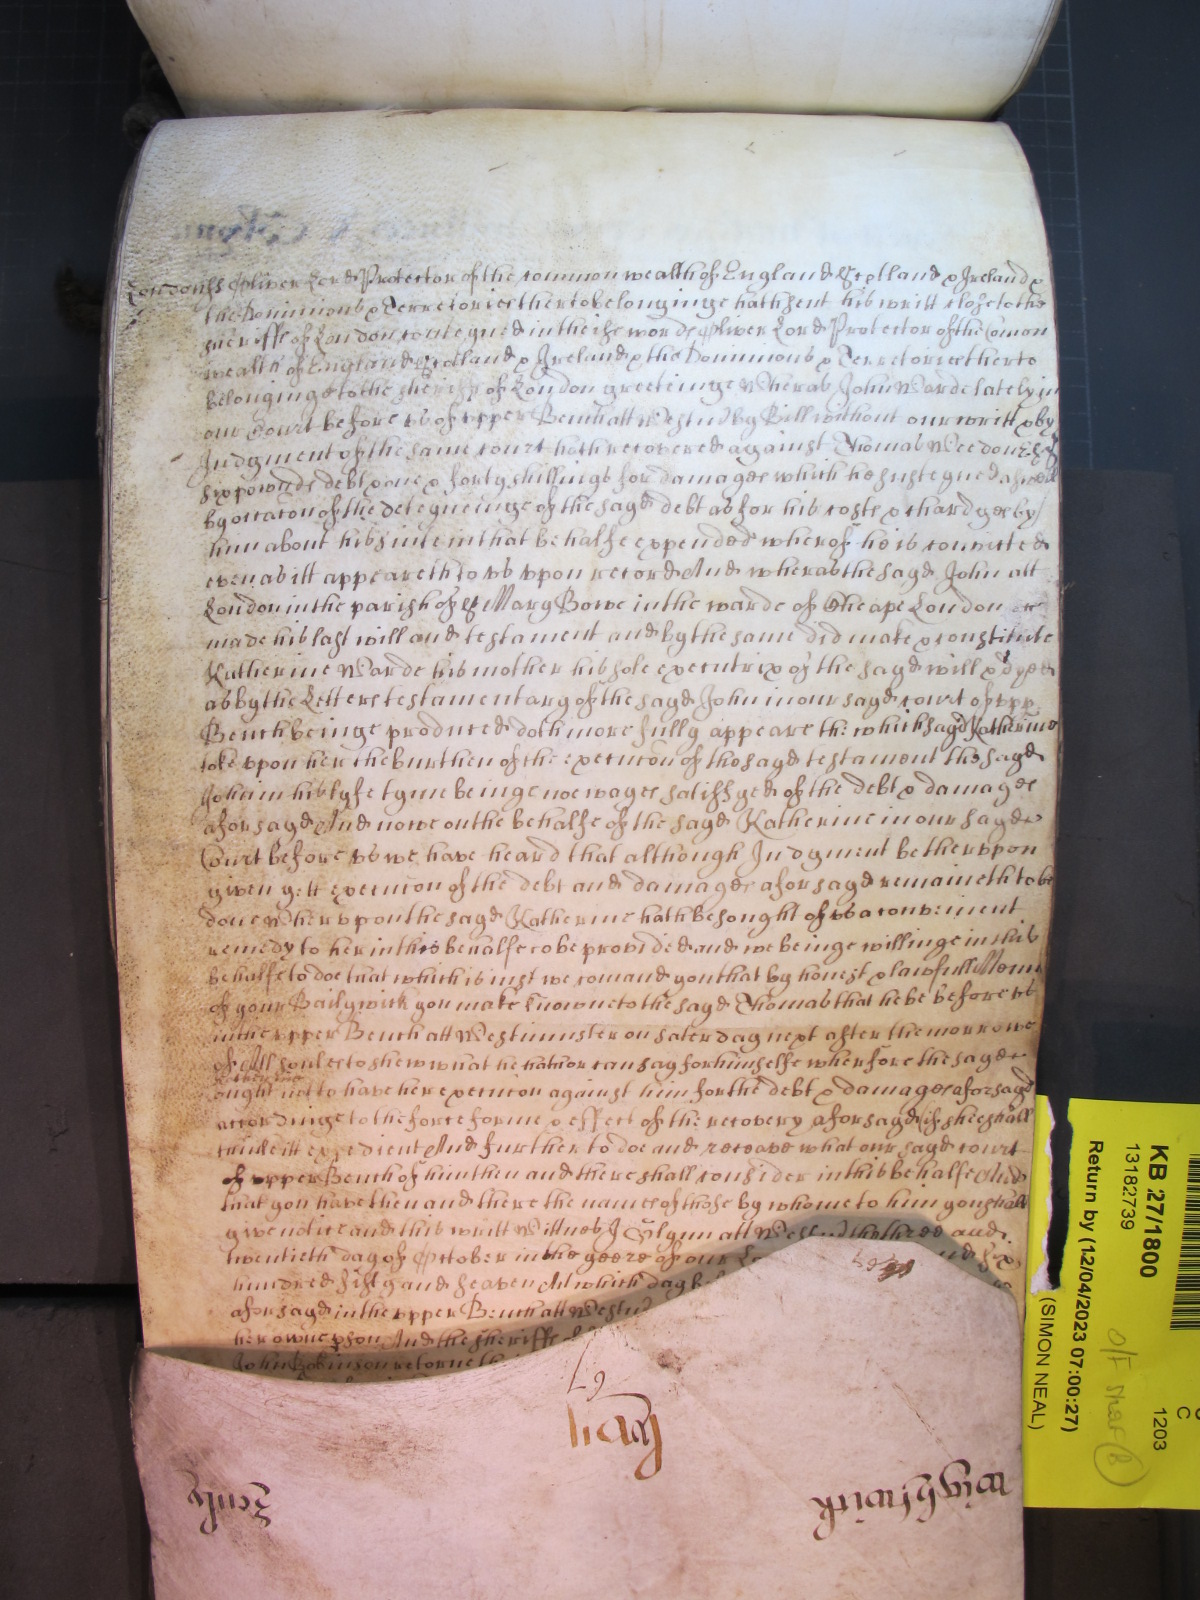 London ss Oliver Lord Protector of the common wealth of England Scotland & Ireland &
the Dominions & Terretories therto belonginge hath sent his writt close to the
sheriffs of London conteyned in theise words Oliver Lord Protector of the Comon
wealth of England Scotland & Ireland & the Dominions & Terretories therto
belonginge to the sheriffs of London greetinge Wheras John Warde lately in
our Court before us of upper Bench att Westm by Bill without our writt & by
Judgment of the same court hath recovered against Thomas
six pownds debt & one & forty shillings for damages which he susteyned aswell
by occacon of the deteyneinge of the sayd debt as for his costs & chardges by
him about his suite in that behalfe expended wherof he is convicted
even as itt appeareth to us upon record And wheras the sayd John att
London in the parish of St Mary Bowe in the warde of Cheape London
made his last will and testament and by the same did make & constitute
Katherine Warde his mother his sole executrix of the sayd will & dyed
as by the Letters testamentary of the sayd John in our sayd court of upp
Bench beinge produced doth more fully appeare the which sayd Katherine
toke upon her the burthen of the execucon of the sayd testament the sayd
John in his lyfe tyme beinge noe wayes satissfyed of the debt & damages
aforsayd And nowe on the behalfe of the sayd Katherine in our sayd
Court before us we have heard that although Judgment be therupon
given yett execucon of the debt and damages aforsayd remaineth to be
done Wherupon the sayd Katherine hath besought of us a convenient
remedy to her in this behalfe to be provided and we beinge willinge in this
behalfe to doe that which is just we comand you that by honest & lawfull Menn
of your Bailywick you make knowne to the sayd Thomas that he be before us
in the upper Bench att Westminster on Saterday next after the morrowe
of All soules to shew what he hath or can say for himselfe wherfore the sayd
Katherine
ought not to have her execucon against him for the debt & damages aforsayd
accordinge to the force forme & effect of the recovery aforsayd if shee shall
thinke itt expedient And further to doe and receave what our sayd court
of upper Bench of him then and there shall consider in this behalfe And
that you have then and there the names of those by whome to him you shall
give notice and this writt Wittnes J Glynn att Westm the three and
twentieth day of October in the yeere of our Lo and six
hundred fifty and seaven At which day
aforsayd in the upper Bench att Westm
her owne pson And the sheriffs
John Robinson retorne th
67
Zenly
Wightwick
KB 27/1800
13182739
Return by (12/04/2023 07:00:27)
(SIMON NEAL)
C
1203